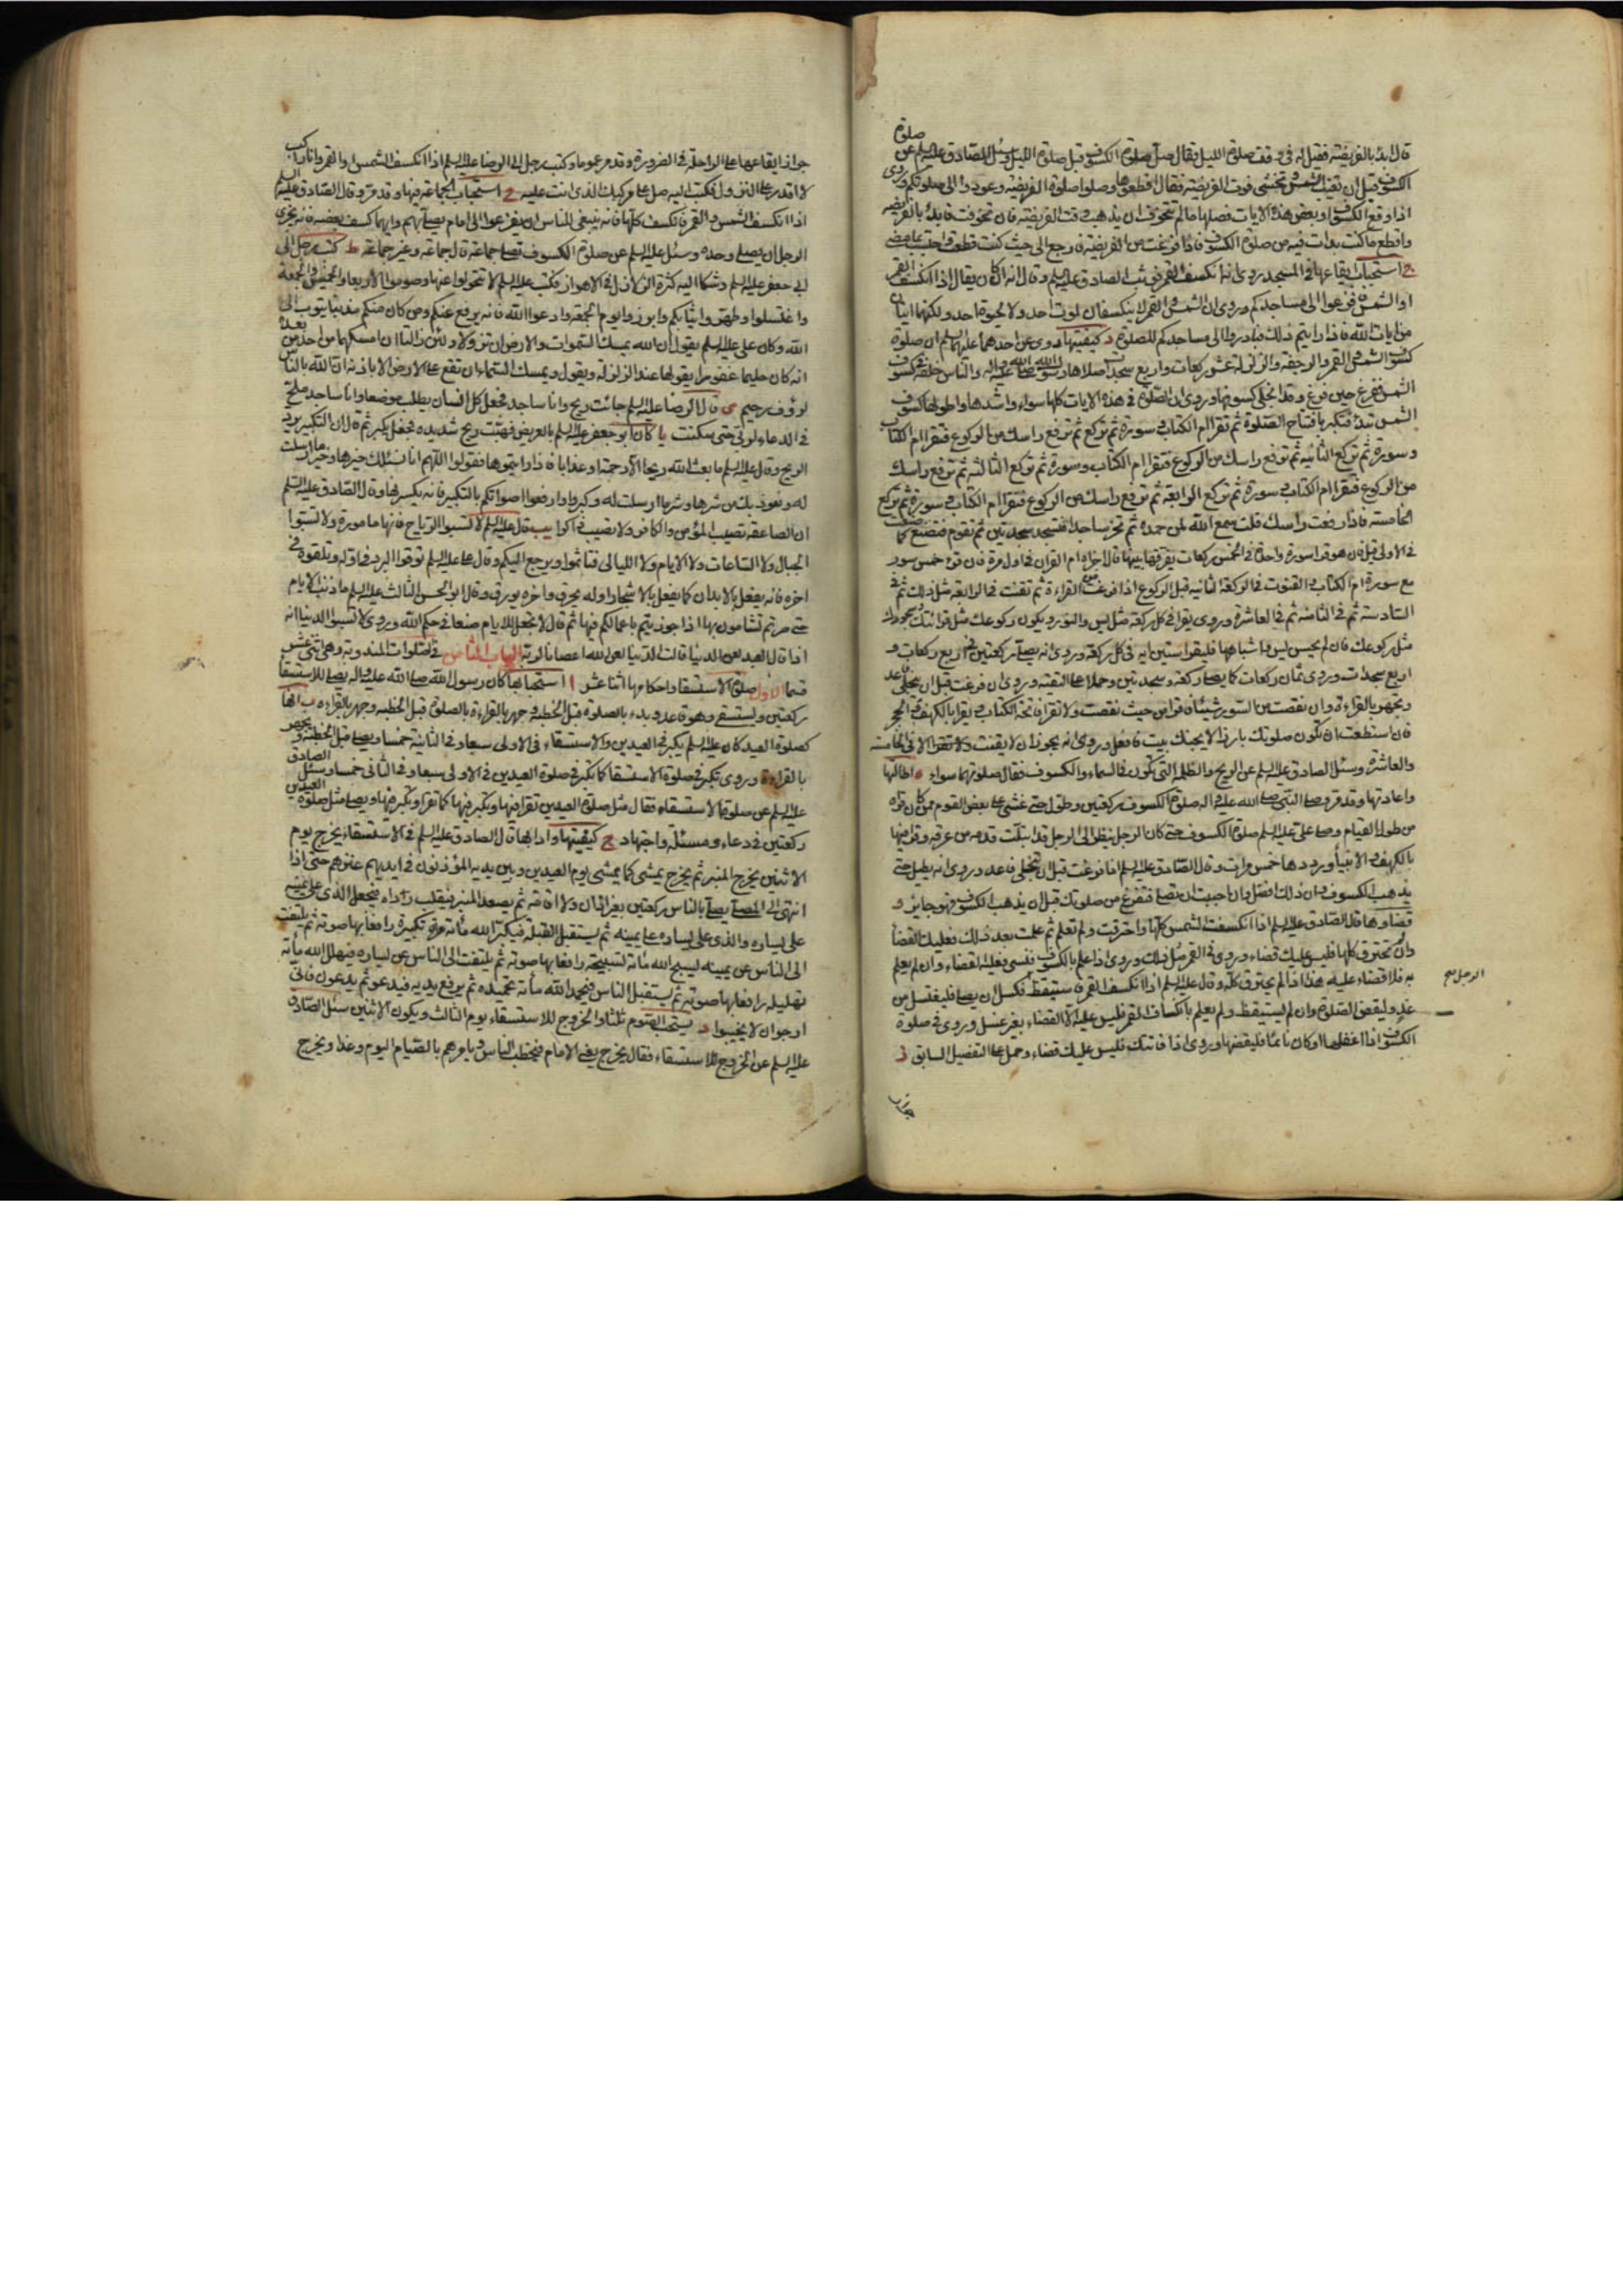 قال ابدأ بالفريضة فقيل له في وقت صلوة الليل فقال صل صلوة الكسوف قبل صلوة الليل وسئل الصادق عليه السلم عن صلوة
الكسوف قبل ان تغيب الشمس وتخشى فوت الفريضة فقال اقطعوها وصلوا صلوة الفريضة وعودوا الى صلوتكم وروى
اذا وقع الكسوف او بعض هذه الايات فصلها ما لم تتخوف ان يذهب وقت الفريضة فان تخوفت فابدأ بالفريضة
واقطع ما كنت بدات فيه من صلوة الكسوف فاذا فرغت من الفريضة فارجع الى حيث كنت قطعت واحتسب بما مضى
ج استحباب ايقاعها في المسجد روى انه انكسف القمر فوثب الصادق عليه السلم وقال انه كان يقال اذا انكسف القمر
او الشمس فافزعوا الى مساجدكم وروى ان الشمس والقمر لا ينكسفان لموت احد ولا لحيوة احد ولكنهما ايتان
من ايات الله فاذا رايتم ذلك فبادروا الى مساجدكم للصلوة د كيفيتها روى عن احدهما عليهما السلم ان صلوة
كسوف الشمس والقمر والرجفة والزلزلة عشر ركعات واربع سجدات صلاها رسول الله صلى الله عليه واله والناس خلفه في كسوف
الشمس ففرغ حين فرغ وقد انجلى كسوفها وروى ان الصلوة في هذه الايات كلها سواء واشدها واطولها كسوف
الشمس تبدأ فتكبر بافتاح الصلوة ثم تقرا ام الكتاب وسورة ثم تركع ثم ترفع راسك من الركوع فتقرا ام الكتاب
وسورة ثم تركع الثانية ثم ترفع راسك من الركوع فتقرا ام الكتاب وسورة ثم تركع الثالثة ثم ترفع راسك
من الركوع فتقرا ام الكتاب وسورة ثم تركع الرابعة ثم ترفع راسك من الركوع فتقرا ام الكتاب وسورة ثم تركع
الخامسة فاذا رفعت راسك قلت سمع الله لمن حمده ثم تخر ساجدا فتسجد سجدتين ثم تقوم فتصنع كما صنعت
في الاولى قيل فان هو قرا سورة واحدة في الخمس ركعات يفرقها بينها قال اجزاه ام القران في اول مرة فان قرء خمس سور
مع سورة ام الكتاب والقنوت في الركعة الثانية قبل الركوع اذا فرغت من القراءة ثم تقنت في الرابعة مثل ذلك ثم في
السادسة ثم في الثامنة ثم في العاشرة وروى يقرا في كل ركعة مثل يس والنور ويكون ركوعك مثل قرائتك وسجودك
مثل ركوعك فان لم يحسن يس واشباهها فليقرا ستين اية في كل ركعة وروى انه يصلى ركعتين في اربع ركعات و
اربع سجدات وروى ثمان ركعات كما يصلى ركعة وسجدتين وحملا على التقية وروى ان فرغت قبل ان ينجلي فاعد
وتجهر بالقراءة وان نقصت من السور شيئا فاقرا من حيث نقصت ولا تقرا فاتحة الكتاب ويقرا بالكهف والحجر
فان استطعت ان تكون صلوتك بارزا لا يجنك بيت فافعل وروى انه يجوز ان لا يقنت ولا تقنت الا في الخامسة
والعاشرة وسئل الصادق عليه السلم عن الريح والظلمة التي تكون في السماء والكسوف فقال صلوتهما سواء ه اطالتها
واعادتها وقد مر وصلى النبي صلى الله عليه واله صلوة الكسوف ركعتين وطول حتى غشي على بعض القوم ممن كان وراه
من طول القيام وصلى علي عليه السلم صلوة الكسوف حتى كان الرجل ينظر الى الرجل قد ابتلت قدمه من عرقه وقرا فيها
بالكهف والانبيأ ورددها خمس مرات وقال الصادق عليه السلم اذا فرغت قبل ان تنجلي فاعد وروى انه يطيل حتى
يذهب الكسوف وان ذلك افضل وان احببت ان تصلى فتفرغ من صلوتك قبل ان يذهب الكسوف فهو جايز و
قضاوها قال الصادق عليه السلم اذا انكسفت الشمس كلها واحترقت ولم تعلم ثم علمت بعد ذلك فعليك القضأ
وان لم تحترق كلها فليس عليك قضاء وروى في القمر مثل ذلك وروى اذا علم بالكسوف فنسي فعليه القضاء وان لم يعلم
به فلا قضاء عليه هذا اذا لم يحترق كله وقال عليه السلم اذا انكسف القمر فاستيقظ الرجل فكسل ان يصلى فليغتسل من
غد وليقض الصلوة وان لم يستيقظ ولم يعلم بانكساف القمر فليس عليه الا القضاء بغير غسل وروى في صلوة
الكسوف اذا اغفلها او كان نائما فليقضها وروى اذا فاتتك فليس عليك قضاء وحمل على التفصيل السابق ز
جواز
جواز ايقاعها على الراحلة في الضرورة وقد مر عموما وكتب رجل الى الرضا عليه السلم اذا انكسف الشمس والقمر وانا راكب
لا اقدر على النزول فكتب اليه صل على مركبك الذي انت عليه ح استحباب الجماعة فيها وقد مر وقال الصادق عليه السلم
اذا انكسف الشمس والقمر فانكسف كلها فانه ينبغي للناس ان يفزعوا الى امام يصلى بهم وايهما كسف بعضه فانه يجزى
الرجل ان يصلى وحده وسئل عليه السلم عن صلوة الكسوف تصلى جماعة قال جماعة وغير جماعة ط كتب رجل الى
ابي جعفر عليه السلم وشكا اليه كثرة الزلازل في الاهواز فكتب عليه السلم لا تتحولوا عنها وصوموا الاربعا والخميس والجمعة
واغتسلوا وطهروا ثيابكم وابرزوا يوم الجمعة وادعوا الله فانه يرفع عنكم ومن كان منكم مذنبا يتوب الى
الله وكان علي عليه السلم يقول ان الله يمسك السموات والارض ان تزولا ولئن زالتا ان امسكهما من احد من بعده
انه كان حليما غفورا يقولها عند الزلزلة ويقول ويمسك السماء ان تقع على الارض الا باذنه ان الله بالناس
لرؤف رحيم ى قال الرضا عليه السلم جائت ريح وانا ساجد فجعل كل انسان يطلب موضعا وانا ساجد ملح
في الدعاء لربي حتى سكنت يا كان ابو جعفر عليه السلم بالعريض فهبت ريح شديدة فجعل يكبر ثم قال ان التكبير يرد
الريح وقال عليه السلم ما بعث الله ريحا الا رحمة او عذابا فاذا رايتموها فقولوا اللهم انا نسئلك خيرها وخير ما ارسلت
له ونعوذ بك من شرها وشر ما ارسلت له وكبروا وارفعوا اصواتكم بالتكبير فانه يكسرها وقال الصادق عليه السلم
ان الصاعقة تصيب المؤمن والكافر ولا تصيب ذاكرا يب قال عليه السلم لا تسبوا الرياح فانها مامورة ولا تسبوا
الجبال ولا الساعات ولا الايام ولا الليالى فتاثموا ويرجع اليكم وقال على عليه السلم توقوا البرد في اوله وتلقوه في
اخره فانه يفعل بالابدان كما يفعل بالاشجار اوله يحرق واخره يورق وقال ابو الحسن الثالث عليه السلم ما ذنب الايام
حتى صرتم تشامون بها اذا جوزيتم باعمالكم فيها ثم قال لا تجعل للايام صنعا في حكم الله وروى لا تسبوا الدنيا انه
اذا قال العبد لعن الدنيا قالت الدنيا لعن الله اعصانا لربه الباب الثامن في الصلوات المندوبة وهي اثنى عشر
قسما الاول صلوة الاستسقا واحكامها اثنا عشر ا استحبابها كان رسول الله صلى الله عليه واله يصلى للاستسقا
ركعتين ويستسقي وهو قاعد وبدء بالصلوة قبل الخطبة وجهر بالقراءة بالصلوة قبل الخطبة وجهر بالقراءه ب انها
كصلوة العيد كان عليه السلم يكبر في العيدين والاستسقاء في الاولى سبعا وفي الثانية خمسا ويصلى قبل الخطبة ويجهر
بالقراءة وروى تكبر في صلوة الاستسقا كما تكبر في صلوة العيدين في الاولى سبعا وفي الثانى خمسا وسئل الصادق
عليه السلم عن صلوة الاستسقاء فقال مثل صلوة العيدين تقرا فيها وتكبر فيها كما تقرا وتكبر فيها ويصلى مثل صلوة العيدين
ركعتين في دعاء ومسئلة واجتهاد ج كيفيتها وادابها قال الصادق عليه السلم في الاستسقاء يخرج يوم
الاثنين يخرج المنبر ثم يخرج يمشي كما يمشي يوم العيدين وبين يديه المؤذنون في ايديهم عنزهم حتى اذا
انتهى الى المصلى يصلى بالناس ركعتين بغير اذان ولا اقامة ثم يصعد المنبر فيقلب رداءه فيجعل الذي على يمينه
على يساره والذي على يساره على يمينه ثم يستقبل القبلة فيكبر الله مائة تكبيرة رافعا بها صوته ثم يلتفت
الى الناس عن يمينه فيسبح الله مائة تسبيحة رافعا بها صوته ثم يلتفت الى الناس عن يساره فيهلل الله مأئة
تهليلة رافعا بها صوته ثم يستقبل الناس فيحمد الله مأئة تحميده ثم يرفع يديه فيدعو ثم يدعون فانى
ارجوان لا يخيبوا د يستحب الصوم ثلثا والخروج للاستسقاء يوم الثالث ويكون الاثنين سئل الصادق
عليه السلم عن الخروج للاستسقاء فقال يخرج يعنى الامام فيخطب الناس ويامرهم بالصيام اليوم وغدا ويخرج